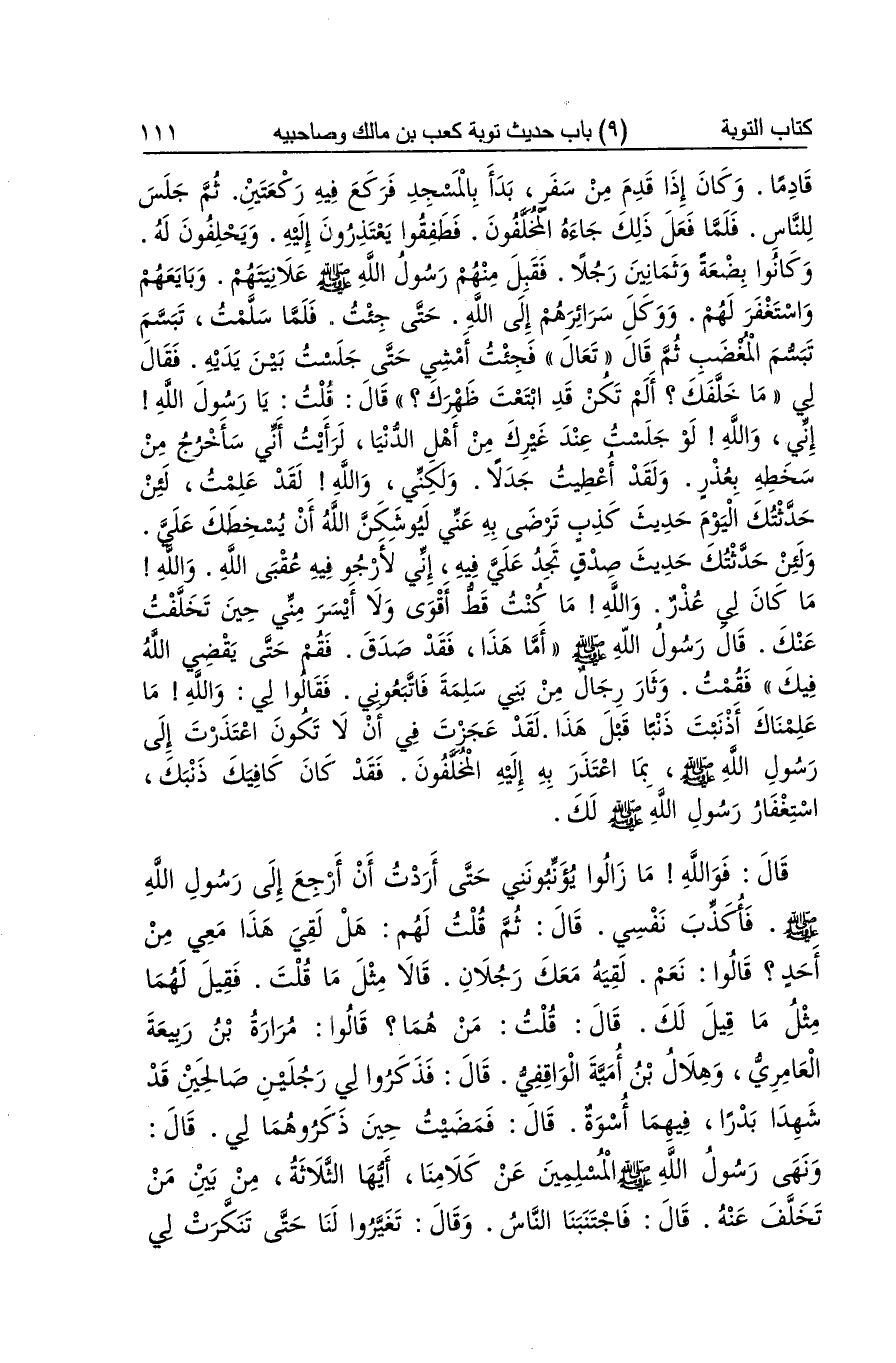 كتاب التوبة (٩) باب حديث توبة كعب بن مالك وصاحبيه ١١١
قَادِمًا . وَكَانَ إِذَا قَدِمَ مِنْ سَفَرٍ ، بَدَأَ بِالْمَسْجِدِ فَرَكَعَ فِيهِ رَكْعَتَيْنِ. ثُمَّ جَلَسَ
لِلنَّاسِ . فَلَمَّا فَعَلَ ذَلِكَ جَاءَهُ الْمُخَلَّفُونَ . فَطَفِقُوا يَعْتَذِرُونَ إِلَيْهِ . وَيَحْلِفُونَ لَهُ .
وَكَانُوا بِضْعَةً وَثَمَانِينَ رَجُلًا . فَقَبِلَ مِنْهُمْ رَسُولُ اللَّهِ ﷺ عَلَانِيَتَهُمْ . وَبَايَعَهُمْ
وَاسْتَغْفَرَ لَهُمْ . وَوَكَلَ سَرَائِرَهُمْ إِلَى اللَّهِ . حَتَّى جِئْتُ . فَلَمَّا سَلَّمْتُ ، تَبَسَّمَ
تَبَسُّمَ الْمُغْضَبِ ثُمَّ قَالَ « تَعَالَ » فَجِئْتُ أَمْشِي حَتَّى جَلَسْتُ بَيْنَ يَدَيْهِ . فَقَالَ
لِي « مَا خَلَّفَكَ ؟ أَلَمْ تَكُنْ قَدِ ابْتَعْتَ ظَهْرَكَ ؟ » قَالَ : قُلْتُ : يَا رَسُولَ اللَّهِ !
إِنِّي ، وَاللَّهِ ! لَوْ جَلَسْتُ عِنْدَ غَيْرِكَ مِنْ أَهْلِ الدُّنْيَا ، لَرَأَيْتُ أَنِّي سَأَخْرُجُ مِنْ
سَخَطِهِ بِعُذْرٍ . وَلَقَدْ أُعْطِيتُ جَدَلًا . وَلَكِنِّي ، وَاللَّهِ ! لَقَدْ عَلِمْتُ ، لَئِنْ
حَدَّثْتُكَ الْيَوْمَ حَدِيثَ كَذِبٍ تَرْضَى بِهِ عَنِّي لَيُوشِكَنَّ اللَّهُ أَنْ يُسْخِطَكَ عَلَيَّ .
وَلَئِنْ حَدَّثْتُكَ حَدِيثَ صِدْقٍ تَجِدُ عَلَيَّ فِيهِ ، إِنِّي لَأَرْجُو فِيهِ عُقْبَى اللَّهِ . وَاللَّهِ !
مَا كَانَ لِي عُذْرٌ . وَاللَّهِ ! مَا كُنْتُ قَطُّ أَقْوَى وَلَا أَيْسَرَ مِنِّي حِينَ تَخَلَّفْتُ
عَنْكَ . قَالَ رَسُولُ اللَّهِ ﷺ « أَمَّا هَذَا ، فَقَدْ صَدَقَ . فَقُمْ حَتَّى يَقْضِيَ اللَّهُ
فِيكَ » فَقُمْتُ . وَثَارَ رِجَالٌ مِنْ بَنِي سَلِمَةَ فَاتَّبَعُونِي . فَقَالُوا لِي : وَاللَّهِ ! مَا
عَلِمْنَاكَ أَذْنَبْتَ ذَنْبًا قَبْلَ هَذَا .لَقَدْ عَجَزْتَ فِي أَنْ لَا تَكُونَ اعْتَذَرْتَ إِلَى
رَسُولِ اللَّهِ ﷺ ، بِمَا اعْتَذَرَ بِهِ إِلَيْهِ الْمُخَلَّفُونَ . فَقَدْ كَانَ كَافِيَكَ ذَنْبَكَ ،
اسْتِغْفَارُ رَسُولِ اللَّهِ ﷺ لَكَ .
قَالَ : فَوَاللَّهِ ! مَا زَالُوا يُؤَنِّبُونَنِي حَتَّى أَرَدْتُ أَنْ أَرْجِعَ إِلَى رَسُولِ اللَّهِ
ﷺ . فَأُكَذِّبَ نَفْسِي . قَالَ : ثُمَّ قُلْتُ لَهُم : هَلْ لَقِيَ هَذَا مَعِي مِنْ
أَحَدٍ ؟ قَالُوا : نَعَمْ . لَقِيَهُ مَعَكَ رَجُلَانِ . قَالَا مِثْلَ مَا قُلْتَ . فَقِيلَ لَهُمَا
مِثْلُ مَا قِيلَ لَكَ . قَالَ : قُلْتُ : مَنْ هُمَا ؟ قَالُوا : مُرَارَةُ بْنُ رَبِيعَةَ
الْعَامِرِيُّ ، وَهِلَالُ بْنُ أُمَيَّةَ الْوَاقِفِيُّ . قَالَ : فَذَكَرُوا لِي رَجُلَيْنِ صَالِحَيْنِ قَدْ
شَهِدَا بَدْرًا ، فِيهِمَا أُسْوَةٌ . قَالَ : فَمَضَيْتُ حِينَ ذَكَرُوهُمَا لِي . قَالَ :
وَنَهَى رَسُولُ اللَّهِ ﷺ الْمُسْلِمِينَ عَنْ كَلَامِنَا ، أَيُّهَا الثَّلَاثَةُ ، مِنْ بَيْنِ مَنْ
تَخَلَّفَ عَنْهُ . قَالَ : فَاجْتَنَبَنَا النَّاسُ . وَقَالَ : تَغَيَّرُوا لَنَا حَتَّى تَنَكَّرَتْ لِي